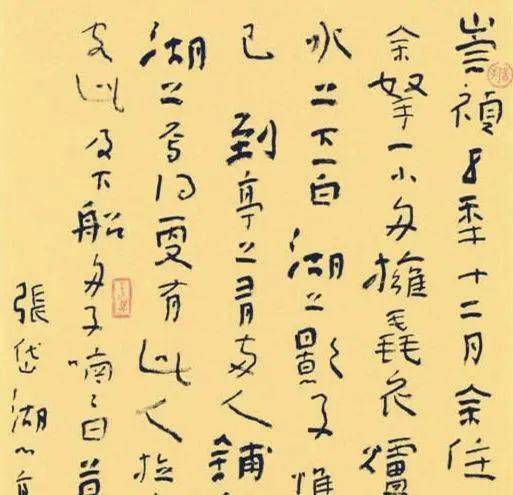 崇禎五年十二月余住
余拏一小舟擁毳衣爐
水上下一白湖上影子惟
已到亭上有兩人鋪
湖上焉得更有此人拉
客此及下船舟子喃喃曰莫
張岱湖心亭